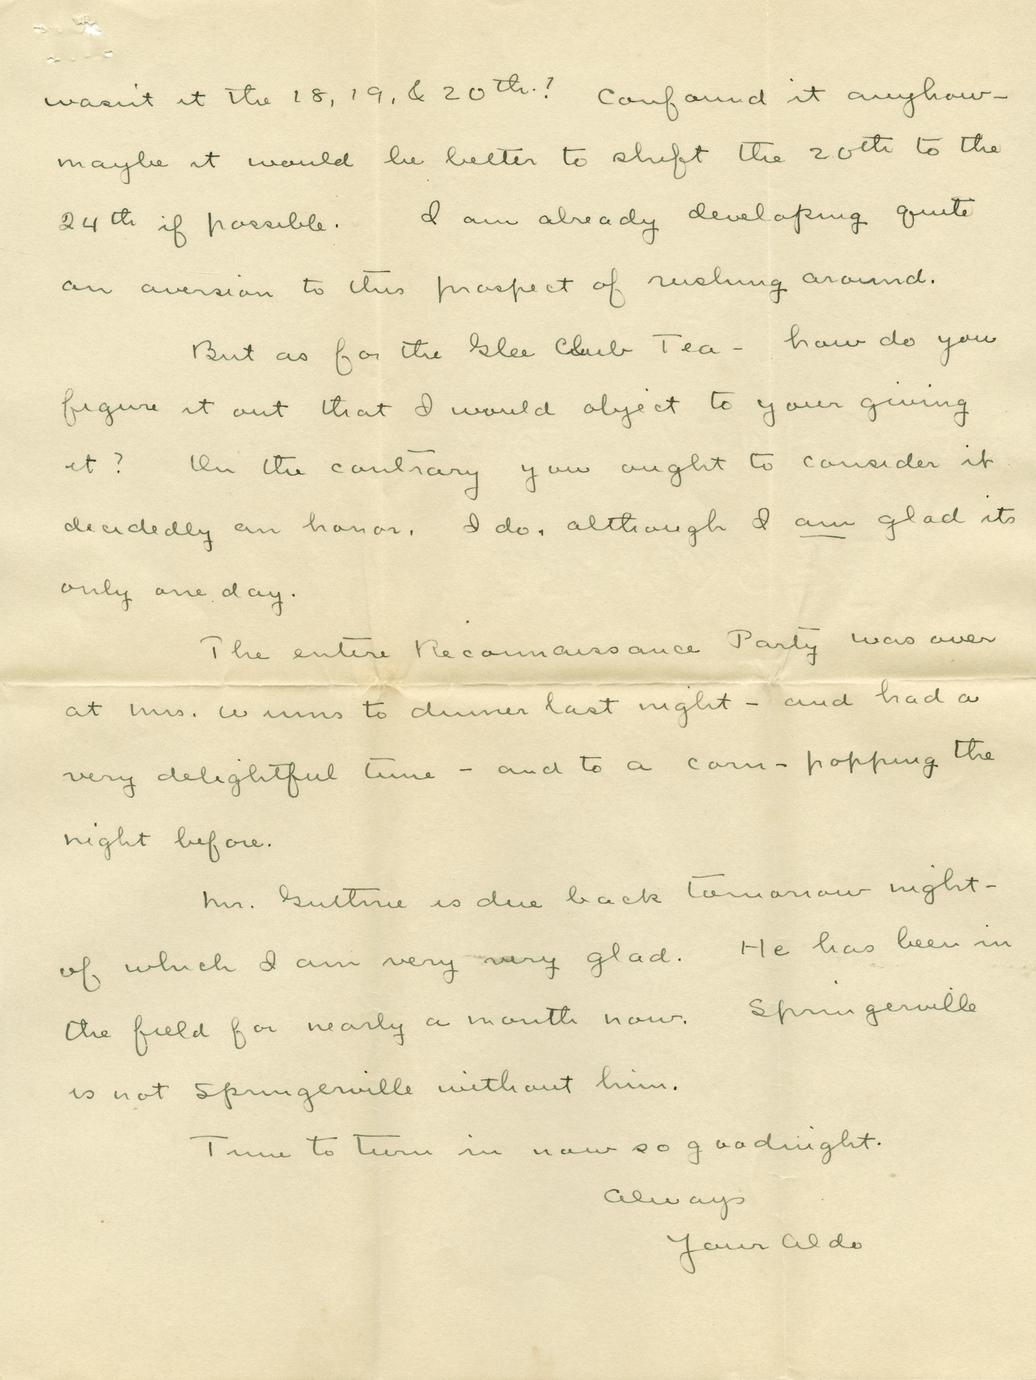 wasn't it the 18, 19, & 20th.? Confound it anyhow—
maybe it would be better to shift the 20th to the
24th if possible. I am already developing quite
an aversion to this prospect of rushing around.
But as for the Glee Club Tea - how do you
figure it out that I would object to your giving
it? On the contrary you ought to consider it
decidedly an honor. I do, although I am glad its
only one day.
The entire Reconnaissance Party was over
at Mrs. Winns to dinner last night - and had a
very delightful time - and to a corn-popping the
night before.
Mr. Guthrie is due back tomorrow night-
of which I am very very glad. He has been in
the field for nearly a month now. Springerville
is not Springerville without him.
Time to turn in now so goodnight.
Always
Your Aldo